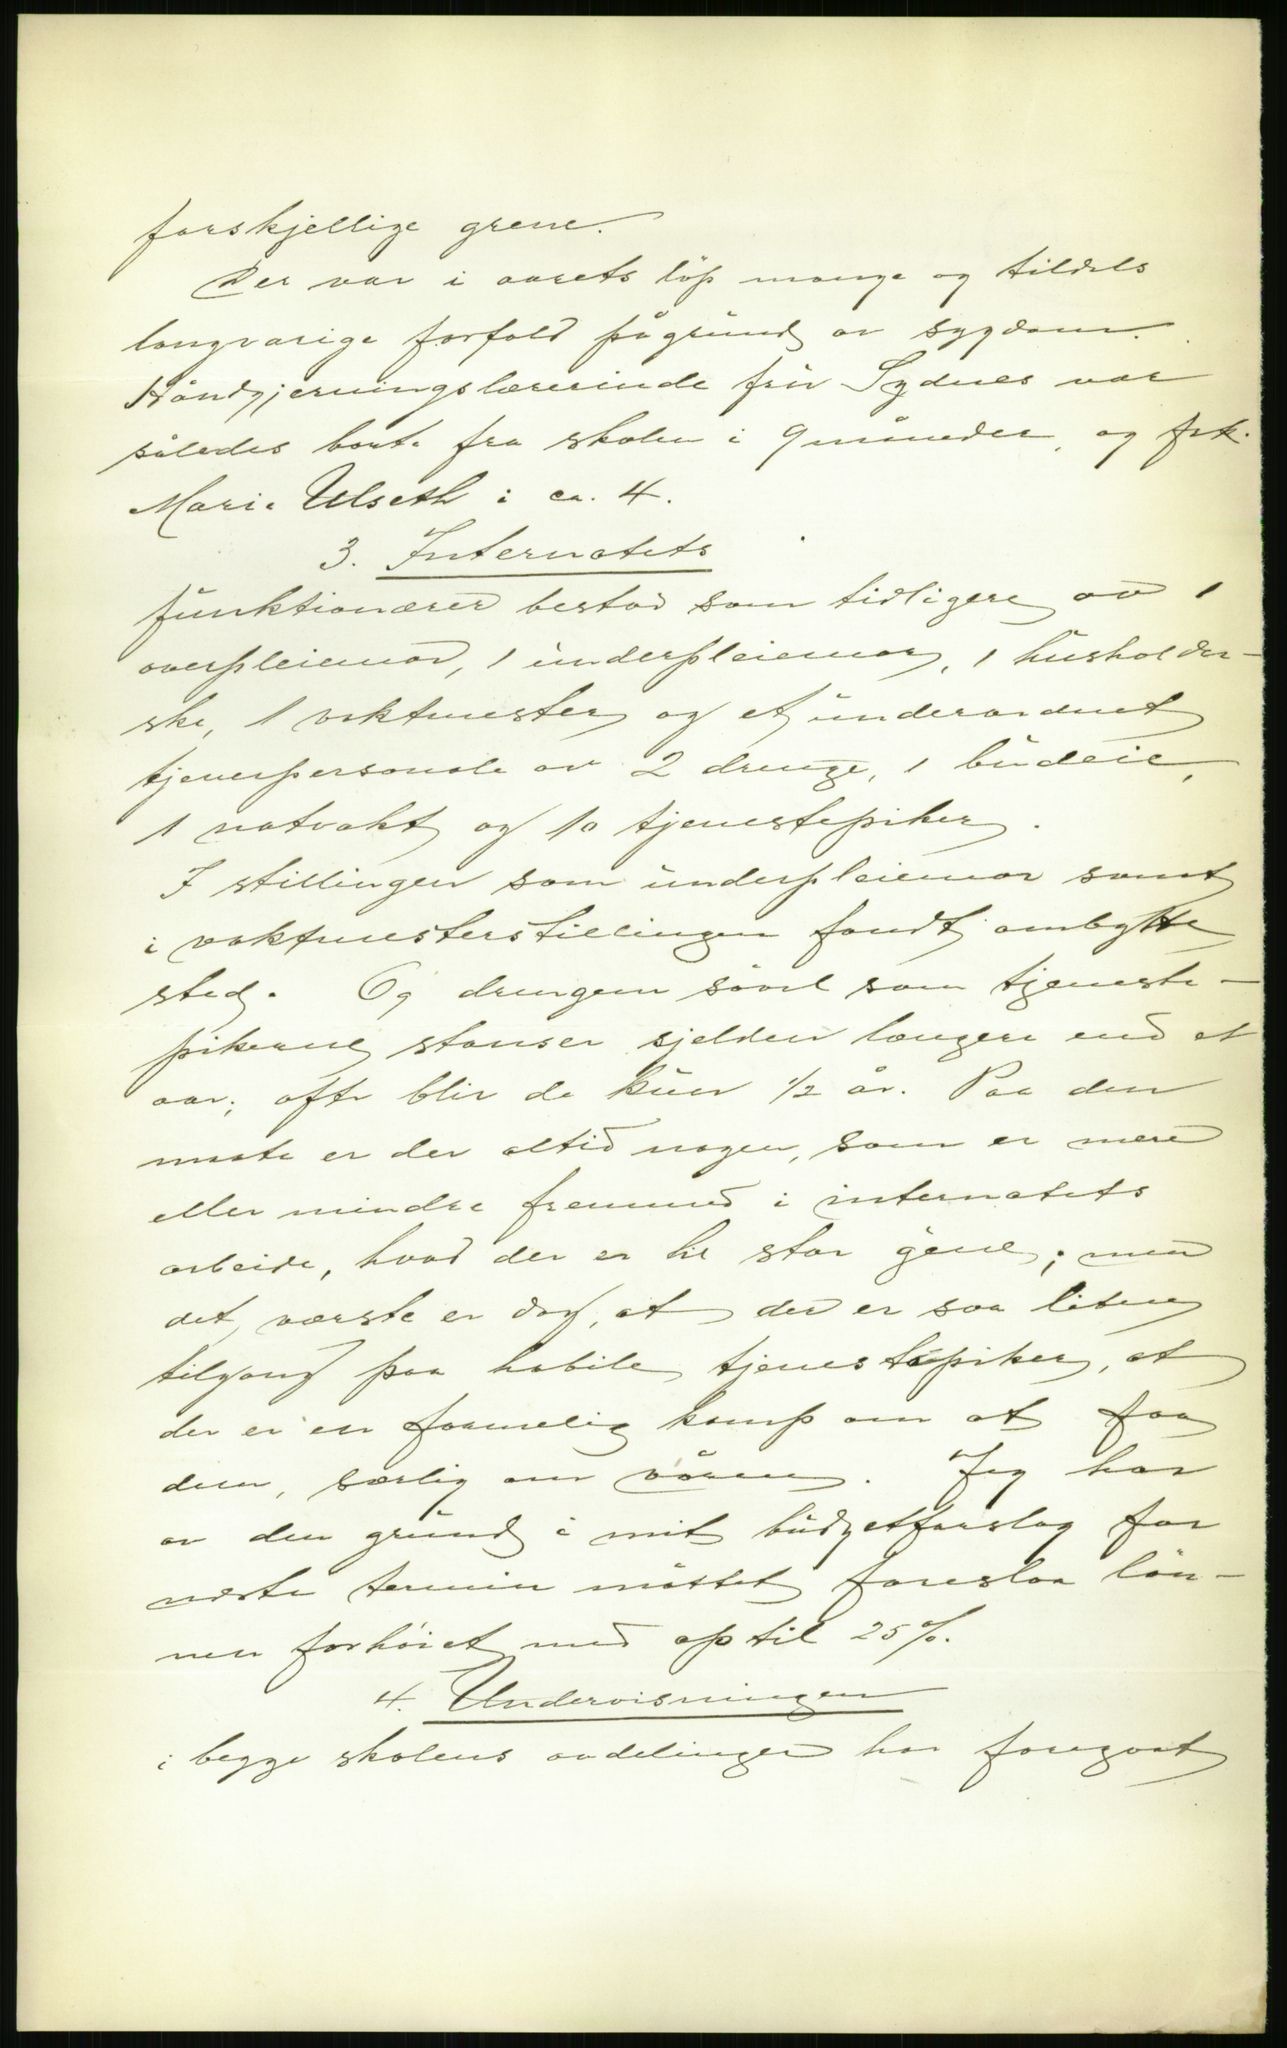 forskjellige grene.
Der var i aarets löp mange og tildels
langvarige forfald pågrund av sygdom.
Håndgjerningslærerinde fru Sydnes var
således borte fra skolen i 9 måneder, og frk.
Marie Ulseth i ca. 4.
3. Internatets
funktionærer bestod som tidligere av 1
overpleiemor, 1 underpleiemor, 1 husholder-
ske, 1 vaktmester og et underordnet
tjenerpersonale av 2 drenge, 1 budeie,
1 natvakt og 10 tjenestepiker.
I stillingen som underpleiemor samt
i vaktmesterstillingen fandt ombytte
sted. Og drengene såvel som tjeneste-
pikerne stanser sjelden længere end et
aar; ofte blir de kun 1/2 år. Paa den
maate er der altid nogen, som er mere
eller mindre fremmed i internatets
arbeide, hvad der er til stor gene; men
det værste er dog, at der er saa liten
tilgang paa habile tjenestepiker, at
der er en formelig kamp om at faa
dem, særlig om våren. Jeg har
av den grund i mit budgetforslag for
næste termin måttet foreslaa lön-
nen forhöiet med op til 25%.
4. Undervisningen
i begge skolens avdelinger har foregaat